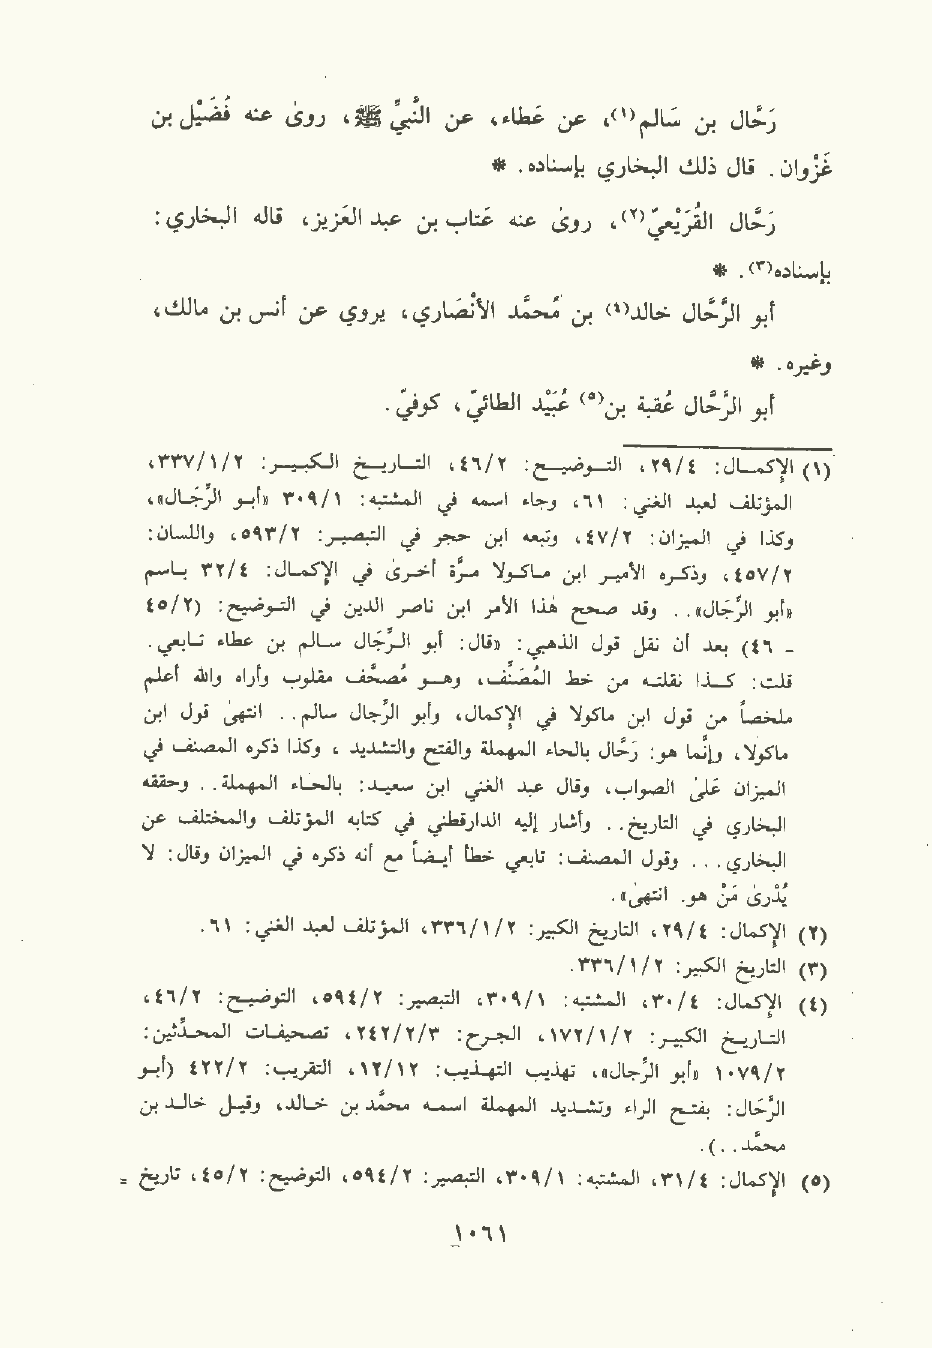 رَحَّال بن سَالم(١)، عن عَطاء، عن النَّبِيِّ ﷺ، روىٰ عنه فُضَيْل بن
غَزْوان. قال ذلك البخاري بإسناده. *
رَحَّال القُرَيْعيّ(٢)، روىٰ عنه عَتاب بن عبد العَزيز، قاله البخاري:
بإسناده(٣). *
أبو الرَّحَّال خالد(٤) بن مُحمَّد الأنْصَاري، يروي عن أنس بن مالك،
وغيره. *
أبو الرَّحَّال عُقبة بن(٥) عُبَيْد الطائيّ، كوفيّ.
(١) الإكمال: ٤/٢٩، التوضيح: ٢/٤٦، التاريخ الكبير: ٢/١/٣٣٧،
المؤتلف لعبد الغني: ٦١، وجاء اسمه في المشتبه: ١/٣٠٩ «أبو الرَّجَال»،
وكذا في الميزان: ٢/٤٧، وتبعه ابن حجر في التبصير: ٢/٥٩٣، واللسان:
٢/٤٥٧، وذكره الأمير ابن ماكولا مرَّة أخرىٰ في الإكمال: ٤/٣٢ باسم
«أبو الرَّجَال».. وقد صحح هٰذا الأمر ابن ناصر الدين في التوضيح: (٢/٤٥
ـ ٤٦) بعد أن نقل قول الذهبي: «قال: أبو الرَّجَال سالم بن عطاء تابعي.
قلت: كذا نقلته من خط المُصَنِّف، وهو مُصَحَّف مقلوب وأراه والله أعلم
ملخصاً من قول ابن ماكولا في الإكمال، وأبو الرجال سالم.. انتهىٰ قول ابن
ماكولا، وإنَّما هو: رَحَّال بالحاء المهملة والفتح والتشديد، وكذا ذكره المصنف في
الميزان عَلىٰ الصواب، وقال عبد الغني ابن سعيد: بالحاء المهملة.. وحققه
البخاري في التاريخ.. وأشار إليه الدارقطني في كتابه المؤتلف والمختلف عن
البخاري... وقول المصنف: تابعي خطأ أيضاً مع أنه ذكره في الميزان وقال: لا
يُدْرىٰ مَنْ هو. انتهىٰ».
(٢) الإكمال: ٤/٢٩، التاريخ الكبير: ٢/١/٣٣٦، المؤتلف لعبد الغني: ٦١.
(٣) التاريخ الكبير: ٢/١/٣٣٦.
(٤) الإكمال: ٤/٣٠، المشتبه: ١/٣٠٩، التبصير: ٢/٥٩٤، التوضيح: ٢/٤٦،
التاريخ الكبير: ٢/١/١٧٢، الجرح: ٣/٢/٢٤٢، تصحيفات المحدِّثين:
٢/١٠٧٩ «أبو الرجال»، تهذيب التهذيب: ١٢/١٢، التقريب: ٢/٤٢٢ (أبو
الرَّحَال: بفتح الراء وتشديد المهملة اسمه محمَّد بن خالد، وقيل خالد بن
محمَّد..).
(٥) الإكمال: ٤/٣١، المشتبه: ١/٣٠٩، التبصير: ٢/٥٩٤، التوضيح: ٢/٤٥، تاريخ =
١٠٦١